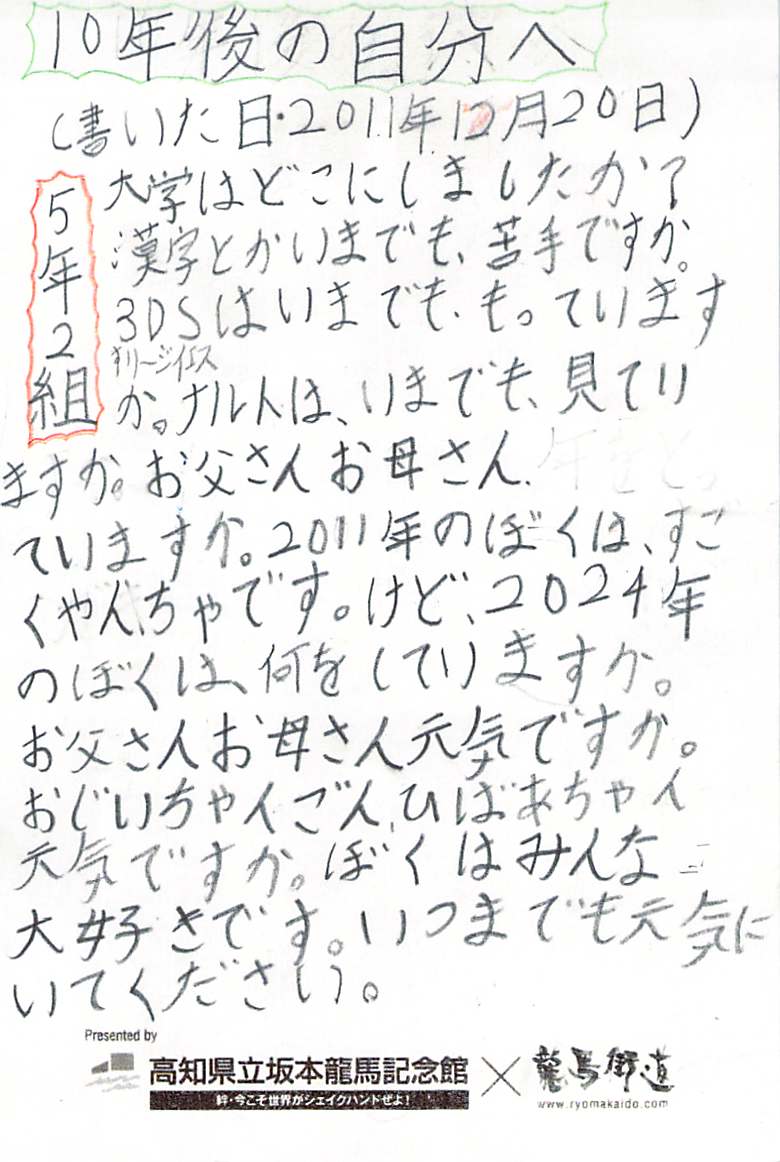 10年後の自分へ
(書いた日・2011年12月20日)
5年2組
大学はどこにしましたか?
漢字とかいまでも、苦手ですか。
3DSはいまでも、もっています
すリージイエス
か。ナルトは、いまでも、見てい
ますか。お父さんお母さん、年をとっ
ていますか。2011年のぼくは、すご
くやんちゃです。けど、2024年
のぼくは、何をしていますか。
お父さんお母さん元気ですか。
おじいちゃん ごん、ひばあちゃん
元気ですか。ぼくはみんな
大好きです。いつまでも元気に
いてください。
Presented by
高知県立坂本龍馬記念館 × 龍馬街道
絆・今こそ世界がシェイクハンドぜよ!
www.ryomakaido.com